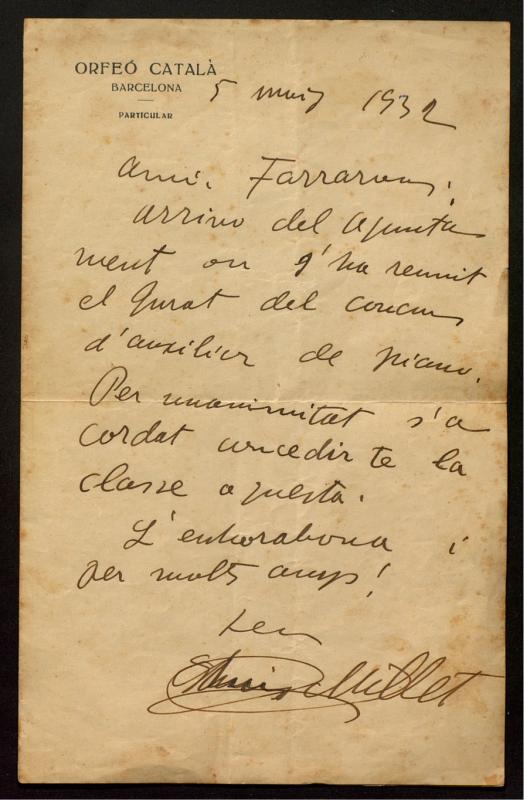 ORFEÓ CATALÀ
BARCELONA
PARTICULAR
5 maig 1932
Amic Farrarons:
Arrivo del Ajunta
ment on s'ha reunit
el Jurat del concurs
d'auxiliar de piano.
Per unanimitat s'a
cordat concedirte la
classe aquesta.
L'enhorabona i
per molts anys!
teu
Millet